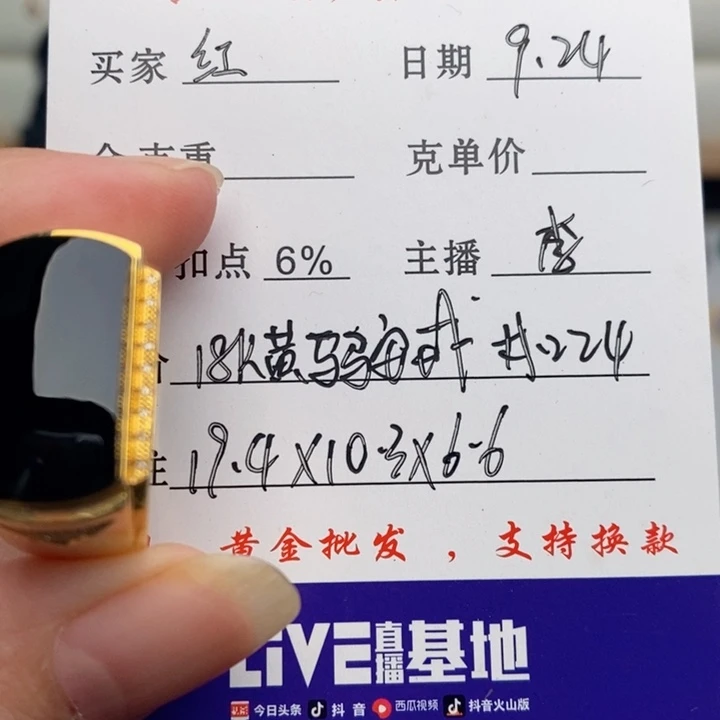 买家 红 日期 9.24
克单价
扣点 6% 主播 李
18K黄
19.4×10.3×6.6
黄金批发，支持换款
LiVE直播基地
今日头条 抖音 西瓜视频 抖音火山版